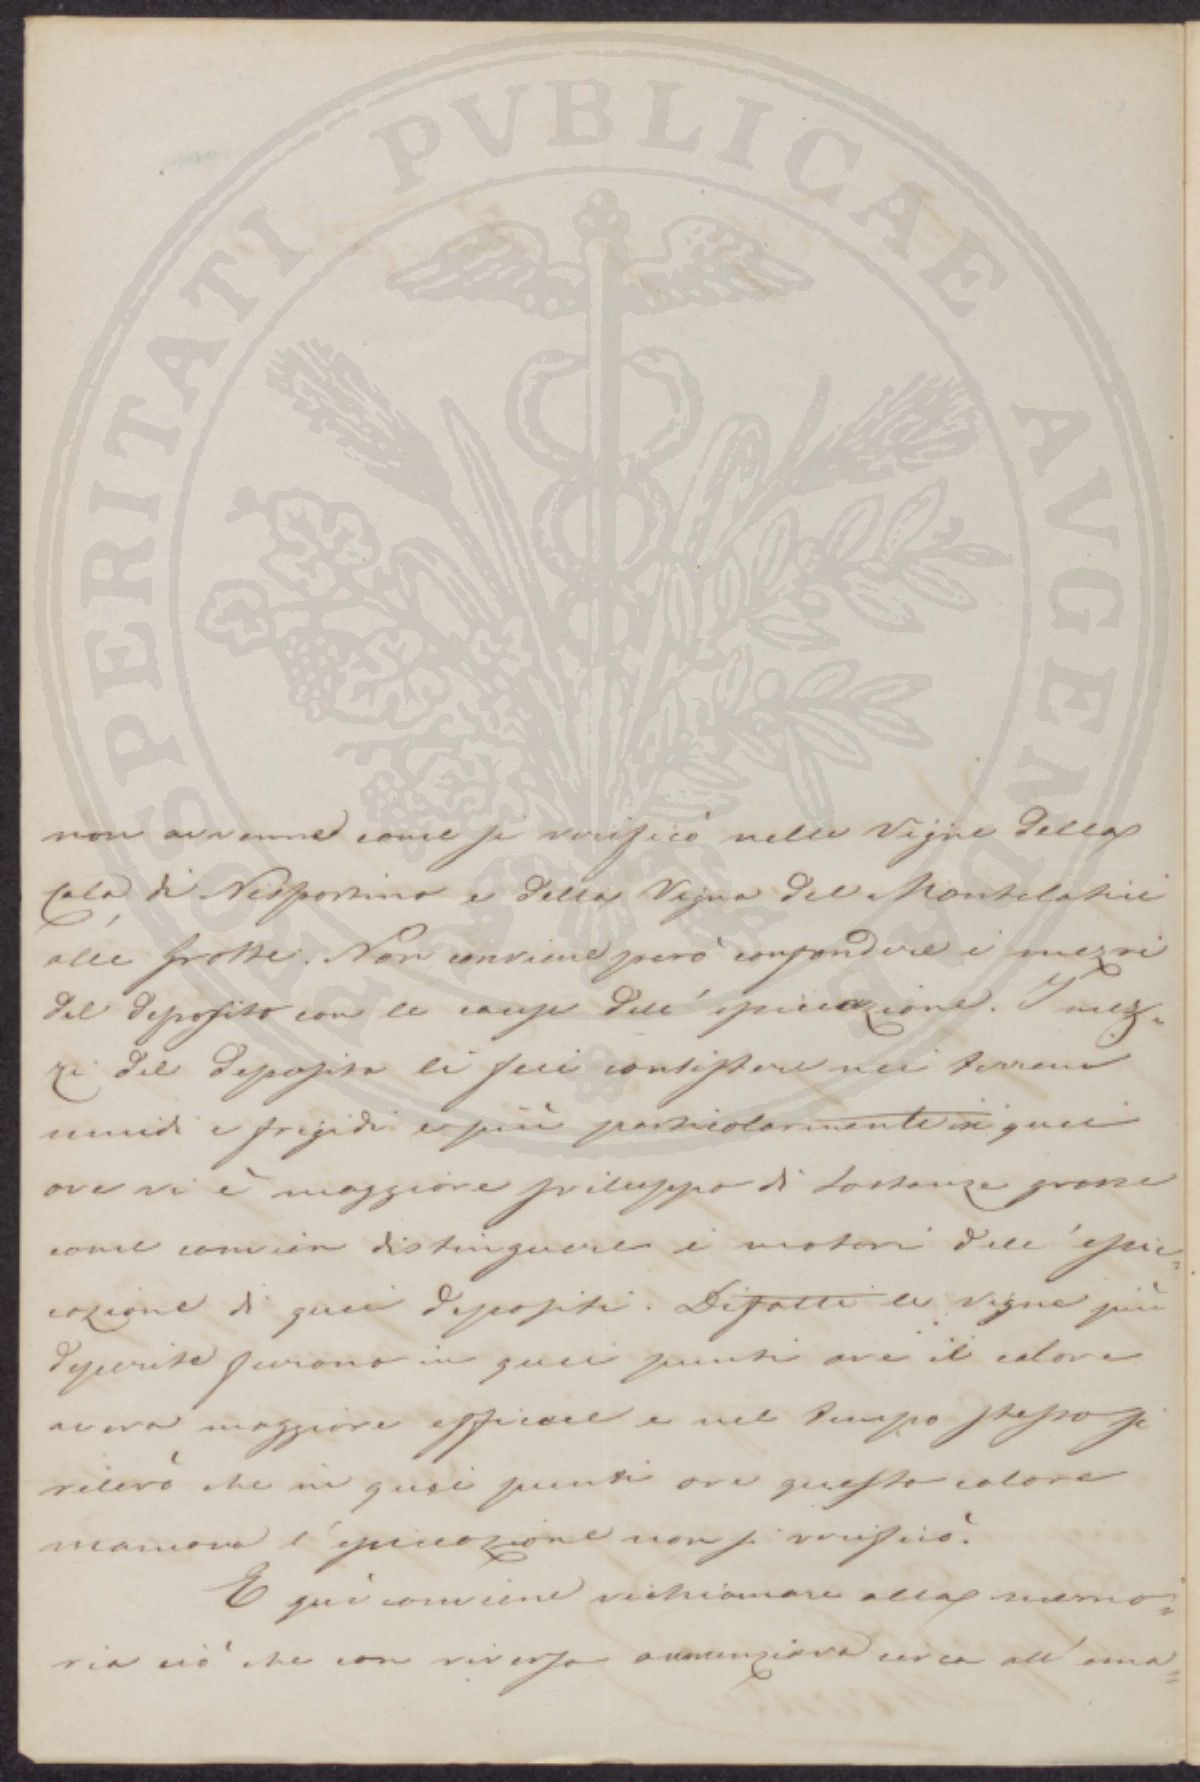 PROSPERITATI PVBLICAE AVGENDAE
non avvenne come si verificò nelle Vigne della
Cala di Nesportino e della Vigna del Montelatici
alle Grotte. Non conviene però confondere i mezzi
del deposito con le cause dell'essiccazione. I mez-
zi del deposito li feci consistere nei terreni
umidi e frigidi e più particolarmente in quei
ove vi è maggiore sviluppo di sostanze grasse
come convien distinguere i motori dell'essic=
cazione di quei depositi. Difatti le vigne più
deperite furono in quei punti ove il calore
aveva maggiore efficace e nel tempo stesso si
rilevò che in quei punti ove questo calore
mancava l'essiccazione non si verificò.
E quì conviene richiamare alla memo=
ria ciò che con riverso annunziava circa all'ema=